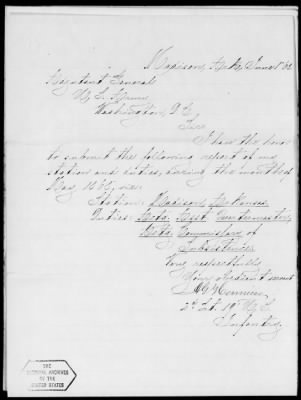 Madison, Ark, June 1st
Adjutant General
U. S. Army
Washington, D. C.
Sir:
I have the honor
to submit the following report of my
station and duties, during the month of
May 186, viz:
Station: Madison, Arkansas
Duties: Actg. Asst. Quartermaster,
Actg. Commissary of
Subsistence
Very respectfully
Your obedient servant
2d Lt. 19" U. S.
Infantry
THE
NATIONAL ARCHIVES
OF THE
UNITED STATES